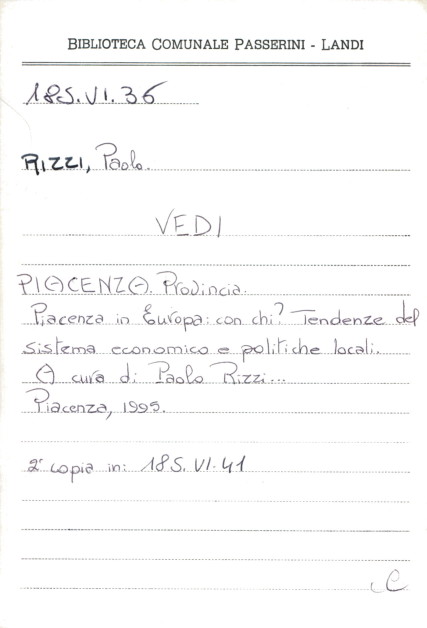 BIBLIOTECA COMUNALE PASSERINI - LANDI
18S.VI.36
RIZZI, Paolo.
VEDI
PIACENZA. Provincia.
Piacenza in Europa: con chi? Tendenze del
sistema economico e politiche locali.
A cura di Paolo Rizzi...
Piacenza, 1995.
2ª copia in: 18S.VI.41